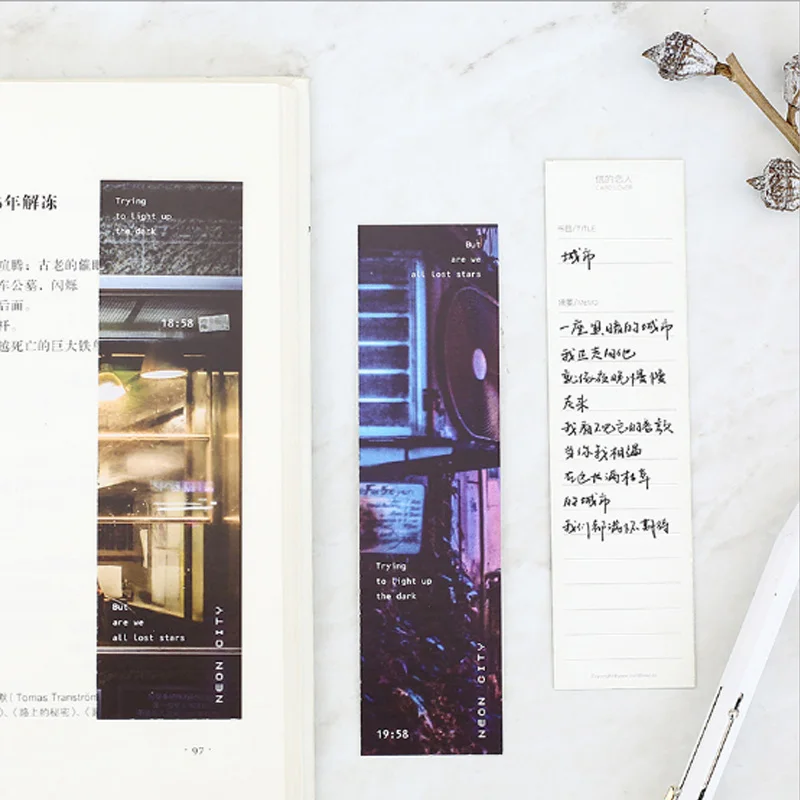 年解冻
喧腾；古老的催眠
车公墓，闪烁
后面。
杆。
越死亡的巨大铁
默(Tomas Tranström
)、《路上的秘密》、《
· 97 ·
Trying
to light up
the dark
18:58
But
are we
all lost stars
NEON CITY
But
are we
all lost stars
Trying
to light up
the dark
NEON CITY
19:58
信的恋人
书目/TITLE
城市
摘要/MEMO
一座黑暗的城市
我正走向他
就像夜晚慢慢
灰来
当你我相遇
在它长满杂草
的城市
我们都满怀期待